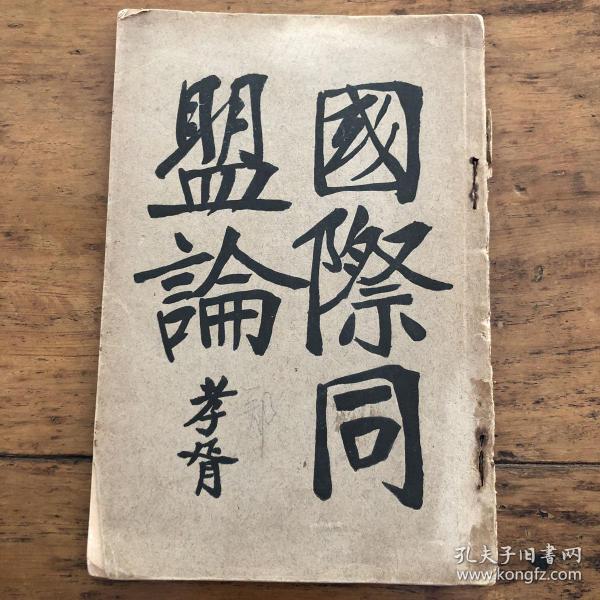 國際同
盟論
孝胥
孔夫子旧书网
www.kongfz.com